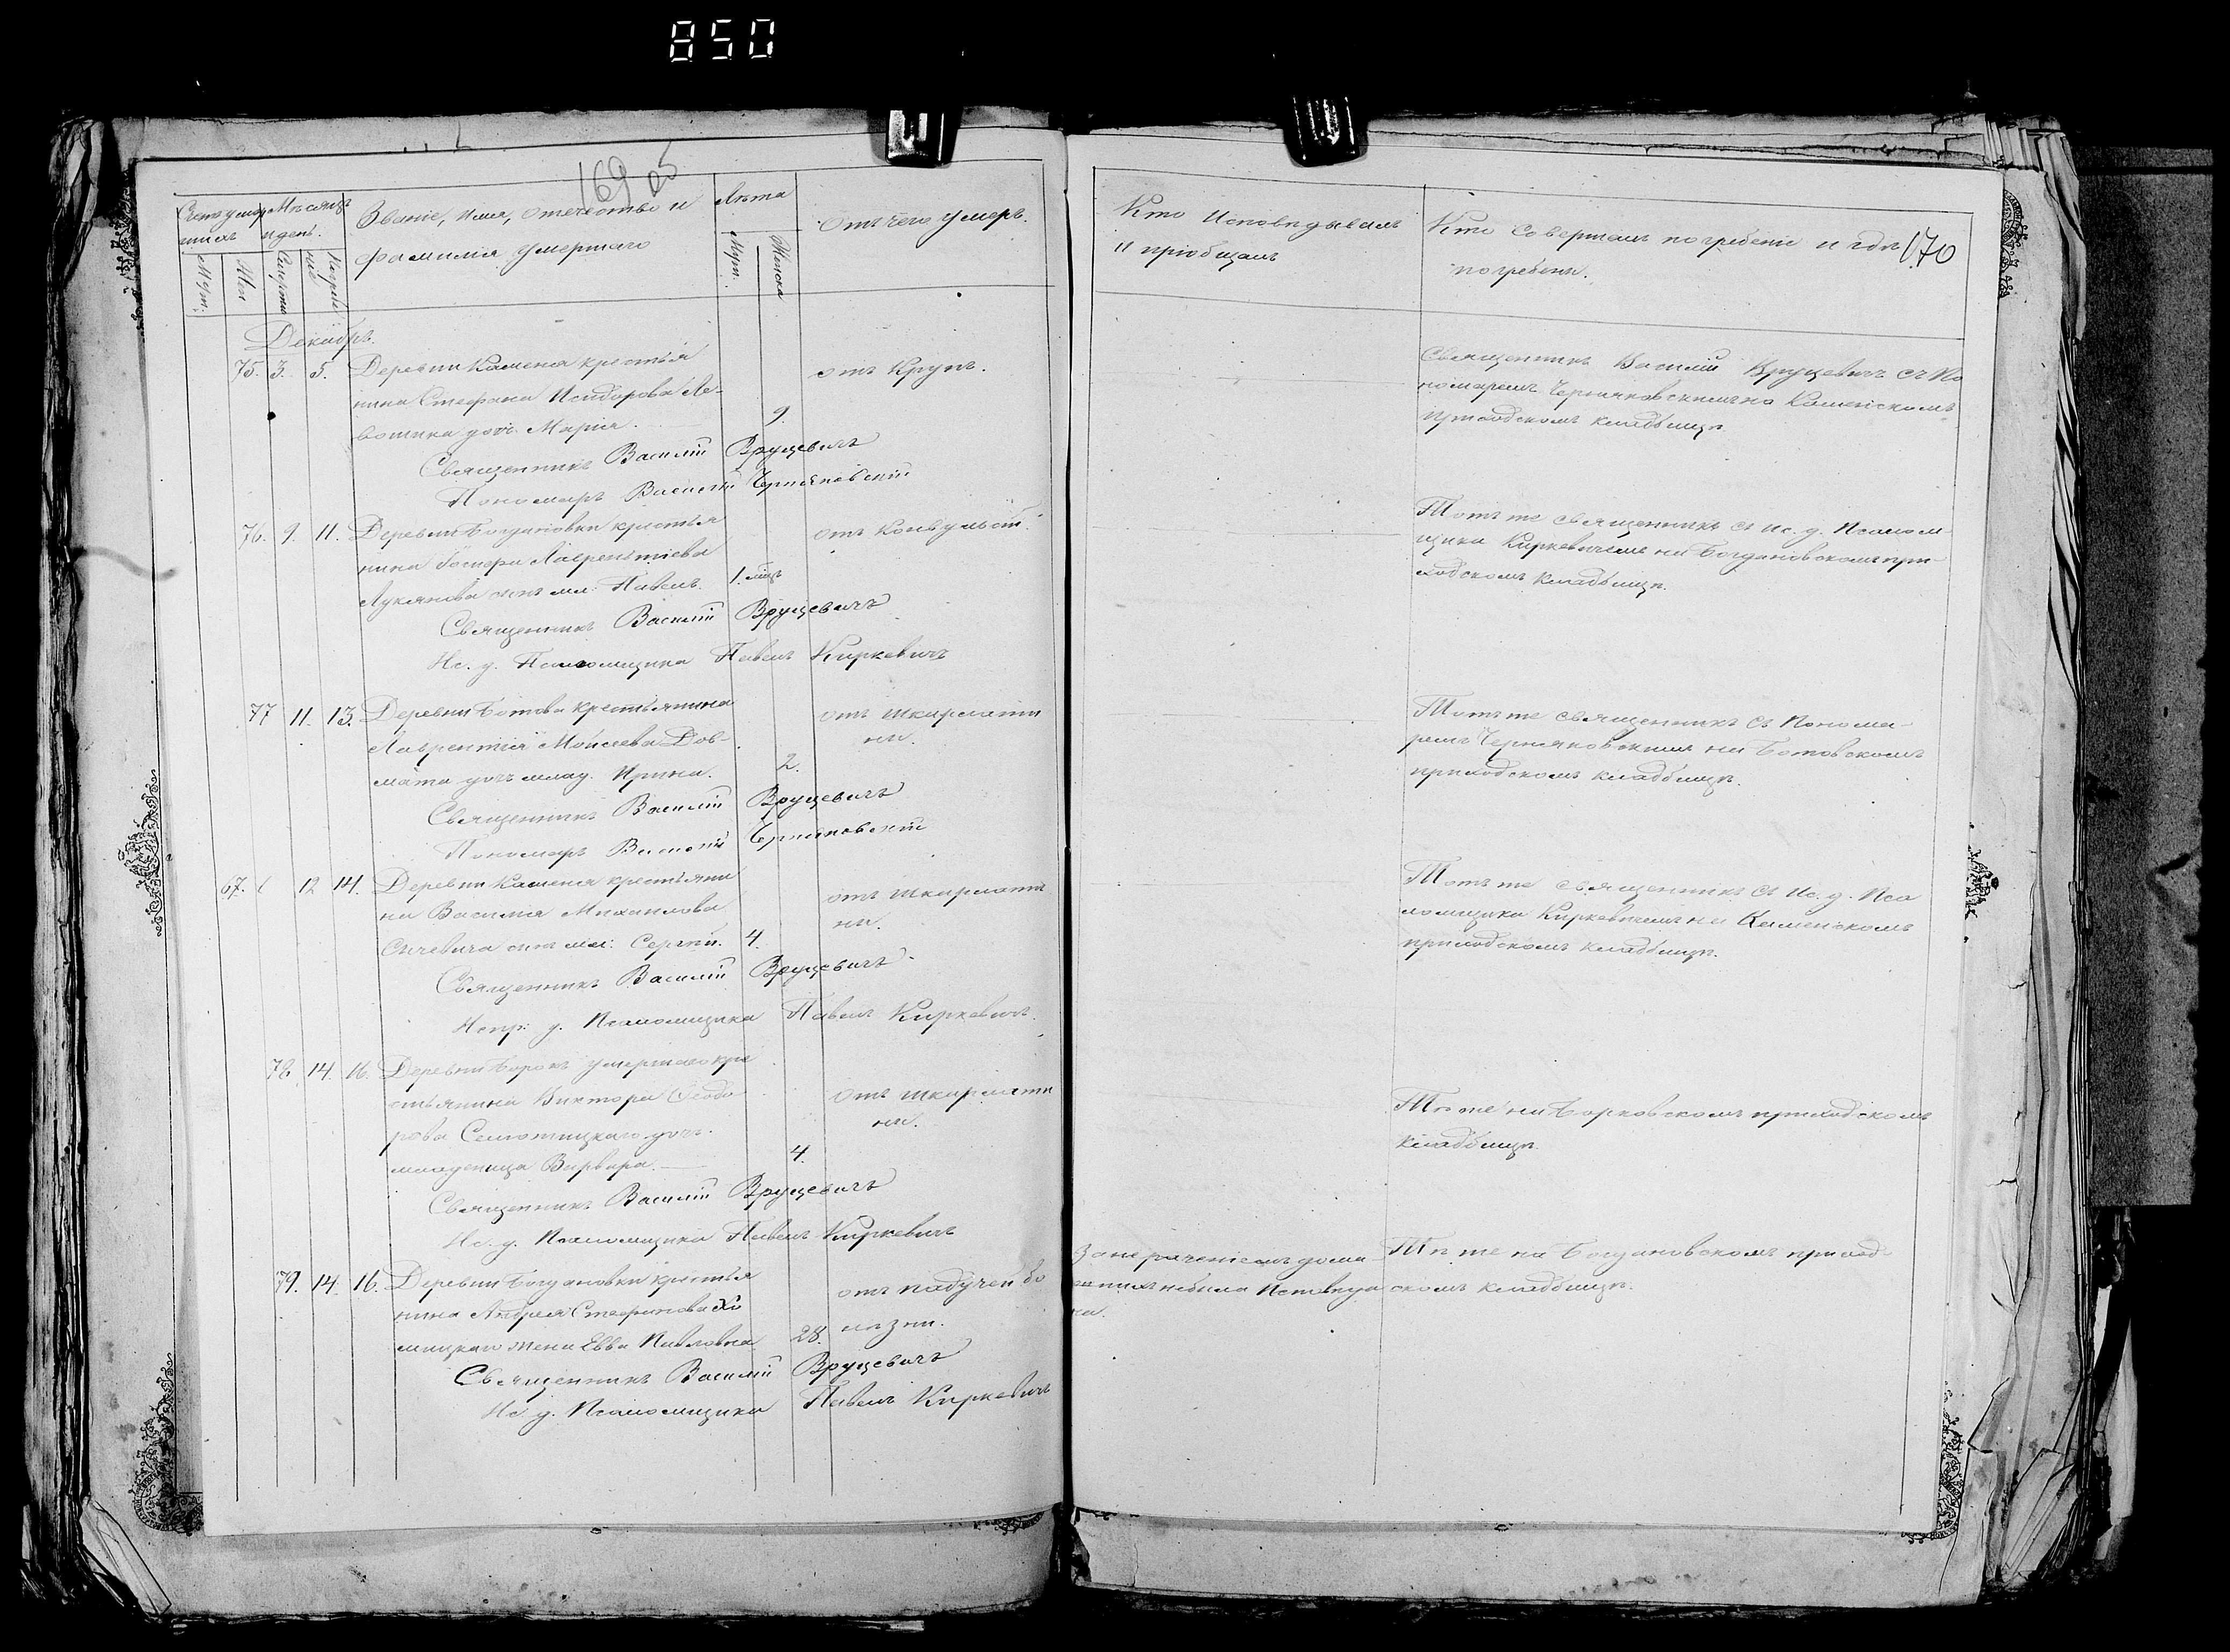 850
169 об
Счетъ умер
шихъ
Мѣсяцъ
и день.
Званіе, имя, отечество и
фамилія умершаго
Лѣта
Отъ чего умеръ.
Муж.
Жен
Смерти
Погребе
нія
Муж.
Женска
Декабрь.
75. 3. 5. Деревни Каменя крестья
нина Стефана Исидорова Ле-
вошика дочь Марія. 9.
отъ Крупъ.
Священникъ Василій Вруцевичъ
Пономарь Василій Черняковскій
76. 9. 11. Деревни Богдановки крестья
нина Іосифа Лаврентіева
Лукянова сынъ мл: Павелъ. 1. мѣц
отъ Конвульсій.
Священникъ Василій Вруцевичъ
Ис. д. Псаломщика Павелъ Киркевичъ
77 11. 13. Деревни Ботова крестьянина
Лаврентія Моисеева Дов-
мата дочь млад. Ирина. 2.
отъ шкарлати
ны.
Священникъ Василій Вруцевичъ
Пономарь Василій Черняковскій
67. 12 14. Деревни Каменя крестьяни
на Василія Михаилова
Сичевича сынъ мл: Сергѣй. 4.
отъ шкарлати
ны.
Священникъ Василій Вруцевичъ
Испр: д. Псаломщика Павелъ Киркевичъ.
78. 14. 16. Деревни Борокъ умершаго кре
стьянина Виктора Ѳеодо
рова дочь
младеница Варвара. 4.
отъ шкарлати
ны.
Священникъ Василій Вруцевичъ
Ис. д. Псаломщика Павелъ Киркевичъ
79. 14. 16. Деревни Богдановки крестья
нина Андрея Стефанова Хо
мицкаго жена Евва Павловна 28.
отъ падучей бо
лѣзни.
Священникъ Василій Вруцевичъ
Ис. д. Псаломщика Павелъ Киркевичъ
Кто Исповѣдывалъ
и пріобщалъ
Кто совершалъ погребеніе и гдѣ
погребены.
170
Священникъ Василій Вруцевичъ съ По
номаремъ Черняковскимъ на Каменскомъ
приходскомъ кладбищѣ.
Тотъ же священникъ съ ис. д. Псалом-
щика Киркевичемъ на Богдановскомъ при-
ходскомъ кладбищѣ.
Тотъ же священникъ съ Понома-
ремъ Черняковскимъ на Ботовскомъ
приходскомъ кладбищѣ.
Тотъ же священникъ съ ис. д. Пса
ломщика Киркевичемъ на Каменскомъ
приходскомъ кладбищѣ.
Тѣ же на Борковскомъ приходскомъ
кладбищѣ.
За нераченіемъ дома
шнихъ небыла Исповѣда
на.
Тѣ же на Богдановскомъ приход
скомъ кладбищѣ.